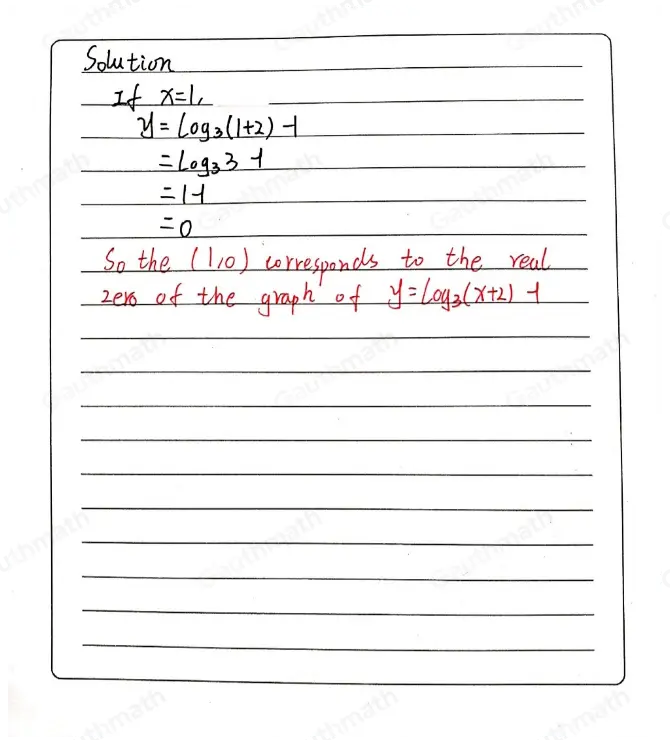 Solution
If x=1,
y=Log₃(1+2)-1
=Log₃3-1
=1-1
=0
So the (1,0) corresponds to the real
zero of the graph of y=Log₃(x+2)-1
Gauthmath